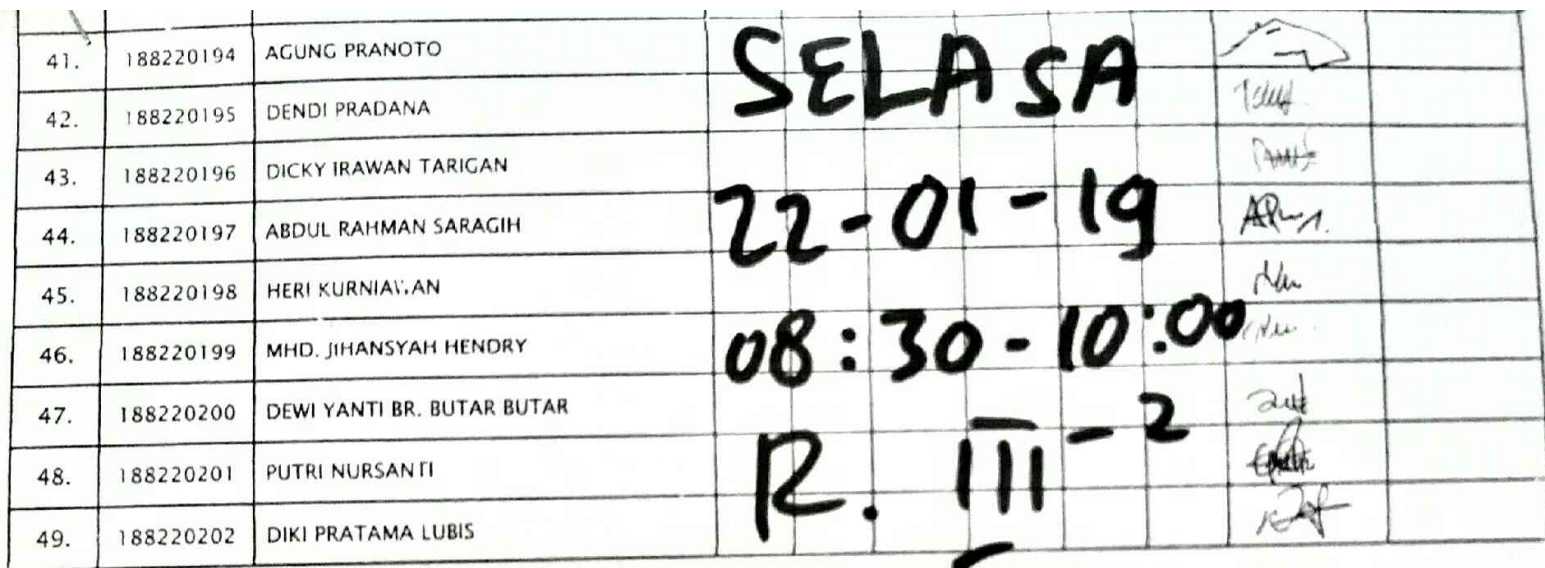 41. 188220194 AGUNG PRANOTO
42. 188220195 DENDI PRADANA
43. 188220196 DICKY IRAWAN TARIGAN
44. 188220197 ABDUL RAHMAN SARAGIH
45. 188220198 HERI KURNIAWAN
46. 188220199 MHD. JIHANSYAH HENDRY
47. 188220200 DEWI YANTI BR. BUTAR BUTAR
48. 188220201 PUTRI NURSANTI
49. 188220202 DIKI PRATAMA LUBIS
SELASA
22-01-19
08:30-10:00
R. III-2